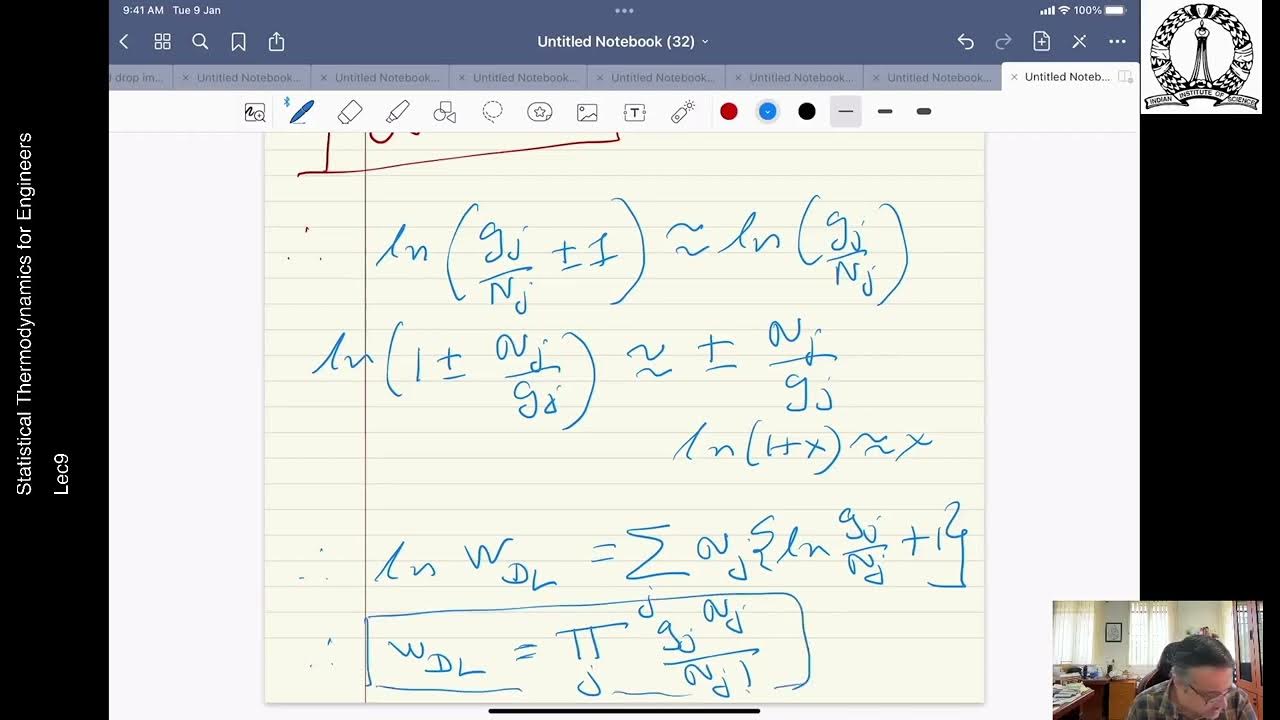 9:41 AM Tue 9 Jan
100%
Untitled Notebook (32)
d drop im...
Untitled Notebook...
Untitled Notebook...
Untitled Notebook...
Untitled Notebook...
Untitled Notebook...
Untitled Notebook...
Untitled Noteb...
INDIAN INSTITUTE OF SCIENCE
Statistical Thermodynamics for Engineers
Lec9
∴ ln (g_j/N_j ± 1) ≈ ln (g_j/N_j)
ln (1 ± N_j/g_j) ≈ ± N_j/g_j
ln(1+x) ≈ x
∴ ln W_DL = ∑_j N_j {ln g_j/N_j + 1}
∴ W_DL = ∏_j g_j^N_j / N_j!